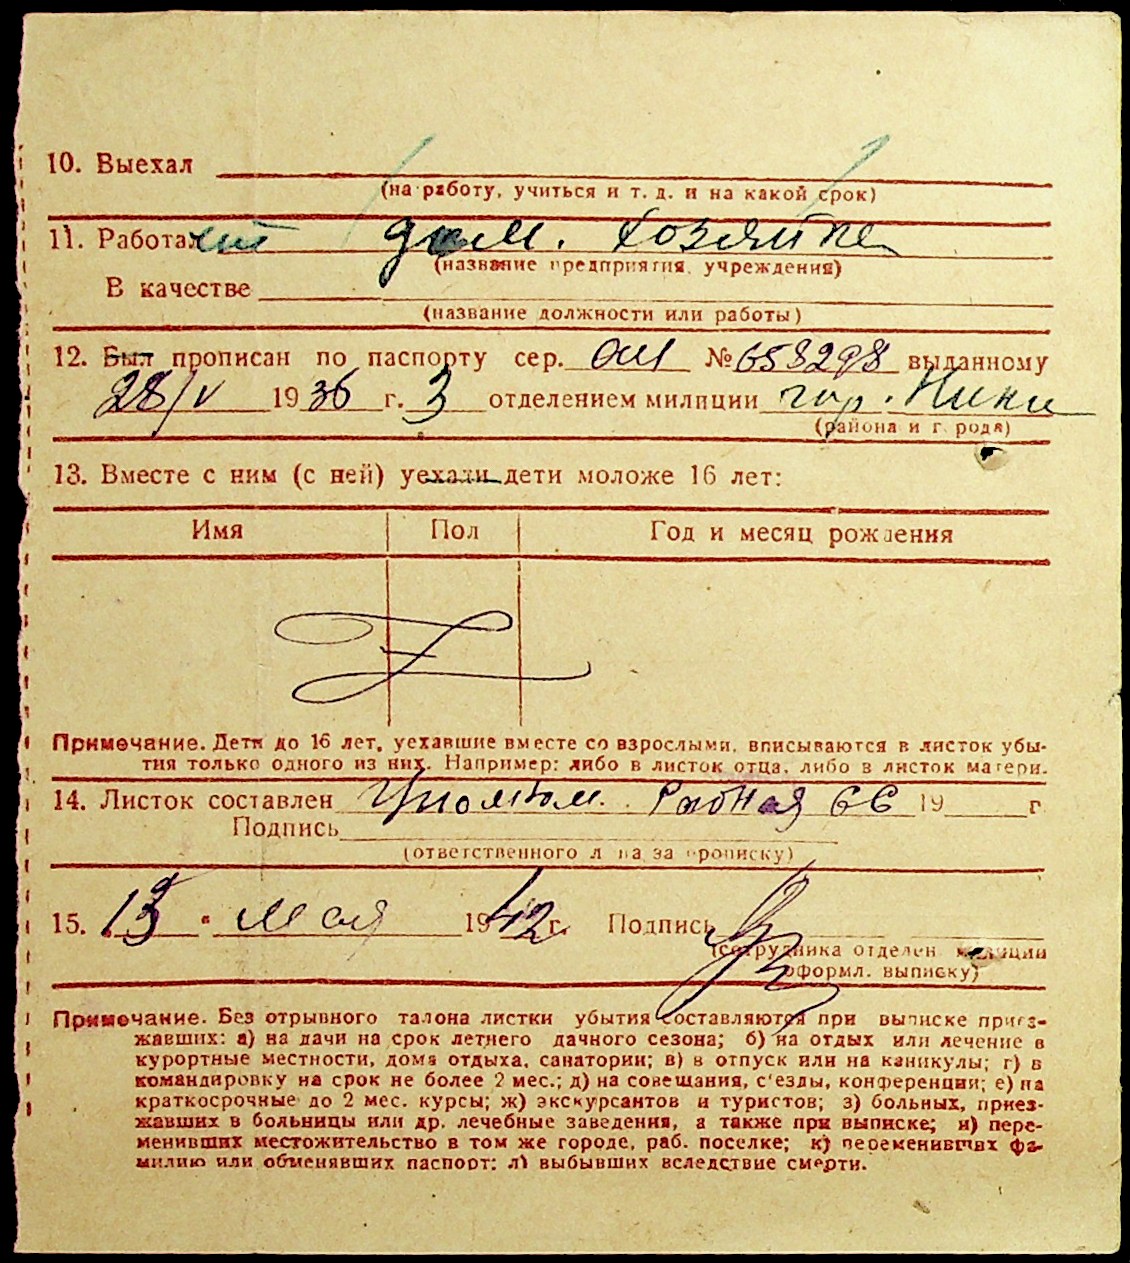 10. Выехал
(на работу, учиться и т. д. и на какой срок)
11. Работает дом. хозяйка
(название предприятия, учреждения)
В качестве
(название должности или работы)
12. Был прописан по паспорту сер. № 658298 выданному
28/V 1936 г. 3 отделением милиции гор.
(района и города)
13. Вместе с ним (с ней) уехали дети моложе 16 лет:
Имя Пол Год и месяц рождения
Примечание. Дети до 16 лет, уехавшие вместе со взрослыми, вписываются в листок убы-
тия только одного из них. Например: либо в листок отца, либо в листок матери.
14. Листок составлен 19 г
Подпись
(ответственного лица за прописку)
15. 13 " мая 1942 г. Подпись
(сотрудника отделен. милиции
оформл. выписку)
Примечание. Без отрывного талона листки убытия составляются при выписке приез-
жавших: а) на дачи на срок летнего дачного сезона; б) на отдых или лечение в
курортные местности, дома отдыха, санатории; в) в отпуск или на каникулы; г) в
командировку на срок не более 2 мес.; д) на совещания, с'езды, конференции; е) на
краткосрочные до 2 мес. курсы; ж) экскурсантов и туристов; з) больных, приез-
жавших в больницы или др. лечебные заведения, а также при выписке; и) пере-
менивших местожительство в том же городе, раб. поселке; к) переменивших фа-
милию или обменявших паспорт; л) выбывших вследствие смерти.